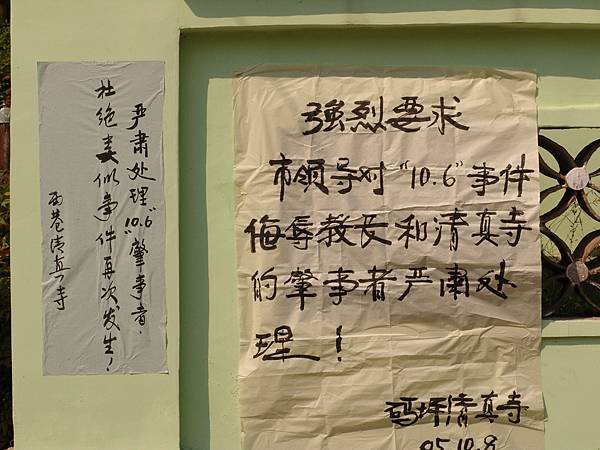 严肃处理"10.6"肇事者，
杜绝类似事件再次发生！
西巷清真寺
強烈要求
市领导对"10.6"事件
侮辱教长和清真寺
的肇事者严肃处
理！
码坪清真寺
05.10.9